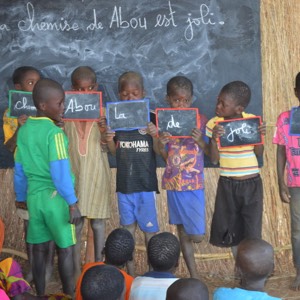 a chemise de Abou est joli.
che
Abou
La
de
joli.
YOKOHAMA